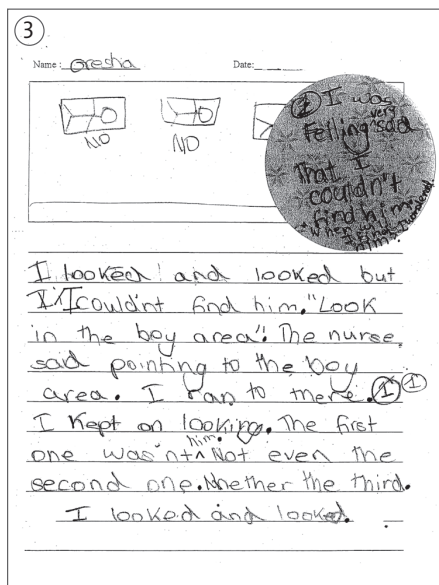 3
Name: Gresha Date:
NO
NO
1 I was
very
Felling sad
That I
couldn't
find him.
I looked! and looked but
I couldnt find him. "Look
in the boy area". The nurse
sad pointing to the boy
area. I ran to there. 1 1
I kept on looking. The first
him.
one was'nt ^ Not even the
second one. Nhether the third.
I looked and looked.